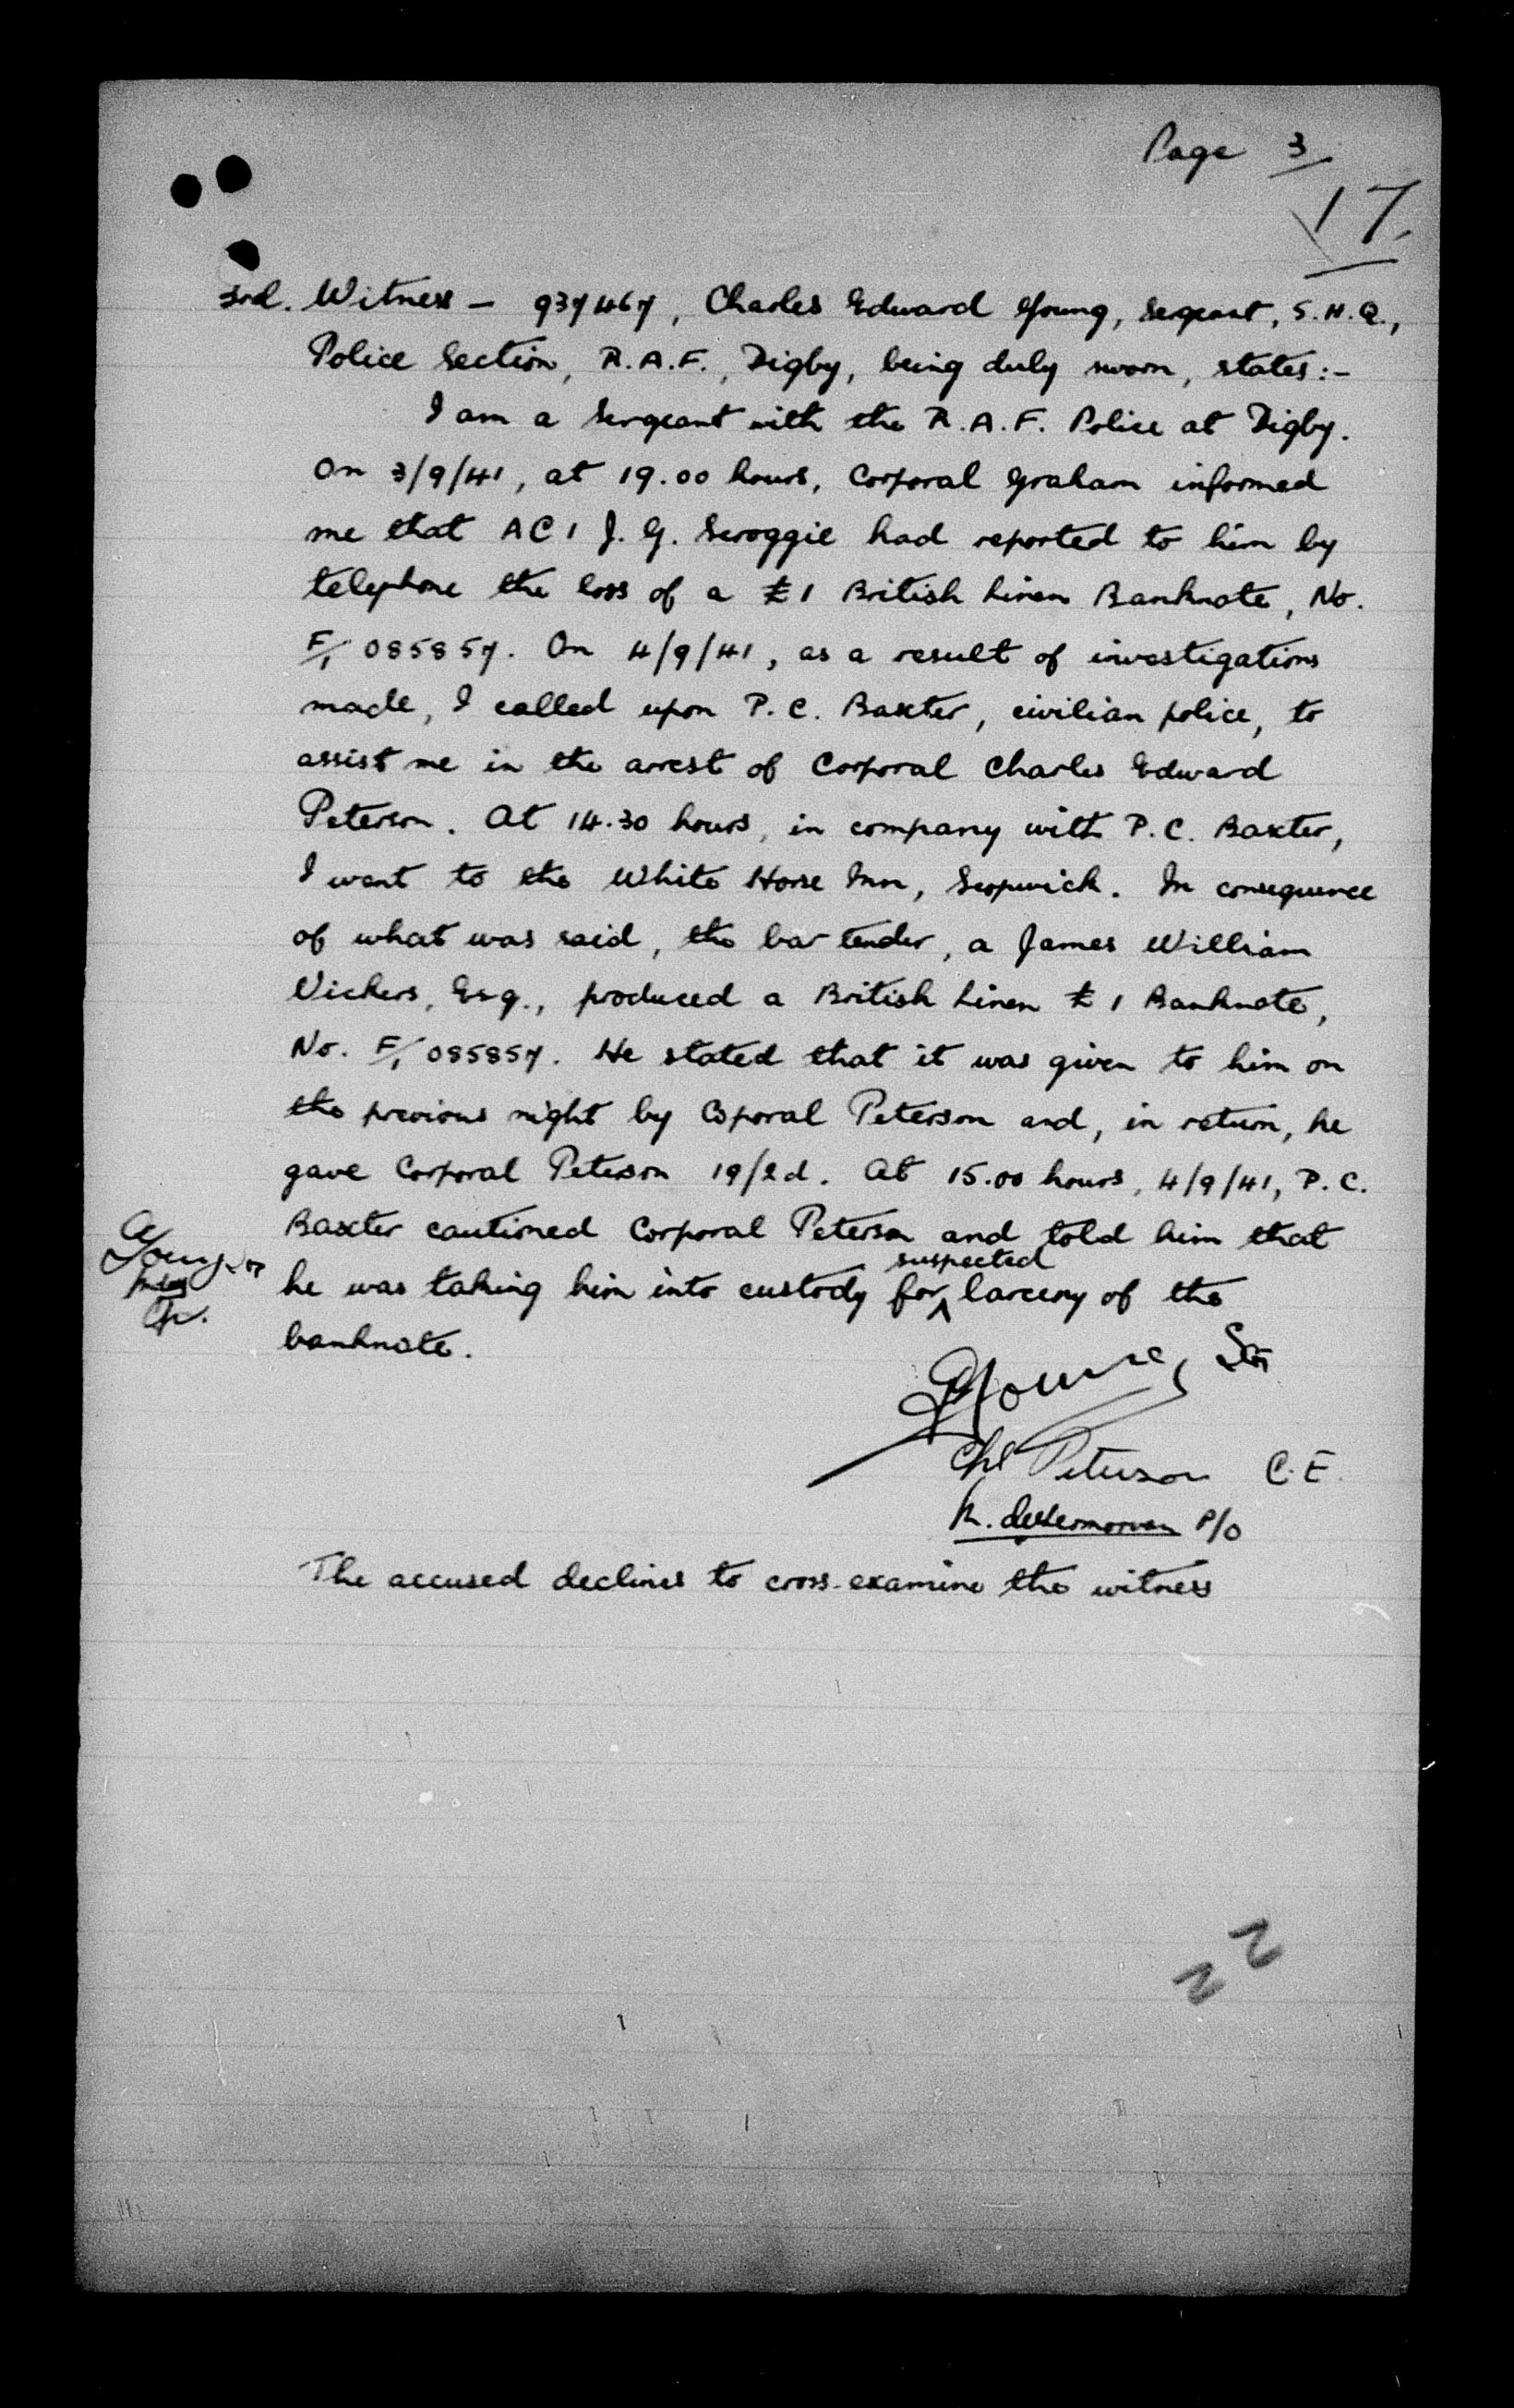 Page 3
17.
3rd. Witness – 937467, Charles Edward Young, Sergeant, S.H.Q.,
Police Section, R.A.F., Digby, being duly sworn, states:-
I am a Sergeant with the R.A.F. Police at Digby.
On 3/9/41, at 19.00 hours, Corporal Graham informed
me that AC1 J. G. Scroggie had reported to him by
telephone the loss of a £1 British Linen Banknote, No.
F/1 085857. On 4/9/41, as a result of investigations
made, I called upon P.C. Baxter, civilian police, to
assist me in the arrest of Corporal Charles Edward
Peterson. At 14.30 hours, in company with P.C. Baxter,
I went to the White Horse Inn, Scopwick. In consequence
of what was said, the bar tender, a James William
Vickers, Esq., produced a British Linen £1 Banknote,
No. F/1 085857. He stated that it was given to him on
the previous night by Coporal Peterson and, in return, he
gave Corporal Peterson 19/2d. At 15.00 hours, 4/9/41, P.C.
Baxter cautioned Corporal Peterson and told him that
he was taking him into custody for suspected larceny of the
banknote.
Young
Young, Sgt
Cpl Peterson C.E.
P/O
The accused declines to cross-examine the witness